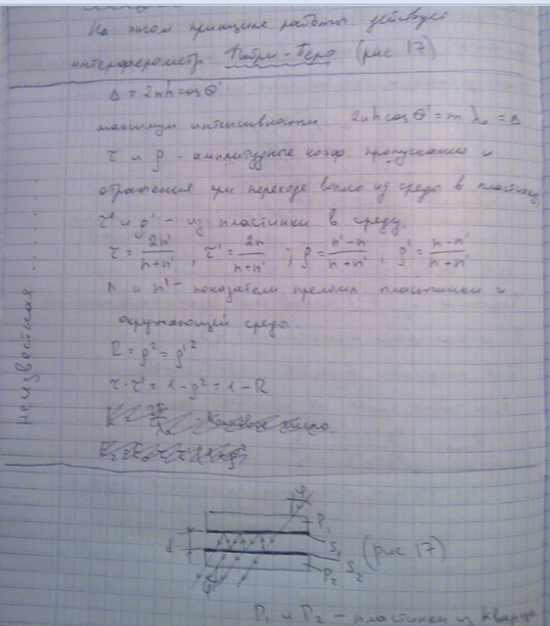 На этом принципе работы действует
интерферометр Фабри-Перо (рис 17)
Δ = 2nh cos θ'
максимум интенсивности 2nh cos θ' = m λ₀ = Δ
τ и ρ - амплитудные коэф. пропускания и
отражения при переходе волн из среды в пластину,
τ' и ρ' - из пластинки в среду.
τ = 2n'/(n+n'), τ' = 2n/(n+n'); ρ = (n'-n)/(n+n'), ρ' = (n-n')/(n+n')
n и n' - показатели преломл. пластинки и
окружающей среды.
R = ρ² = ρ'²
τ·τ' = 1-ρ² = 1-R
неизвестная
φ
P₁
S₁
d
S₂
P₂
(рис 17)
P₁ и P₂ - пластинки из кварца